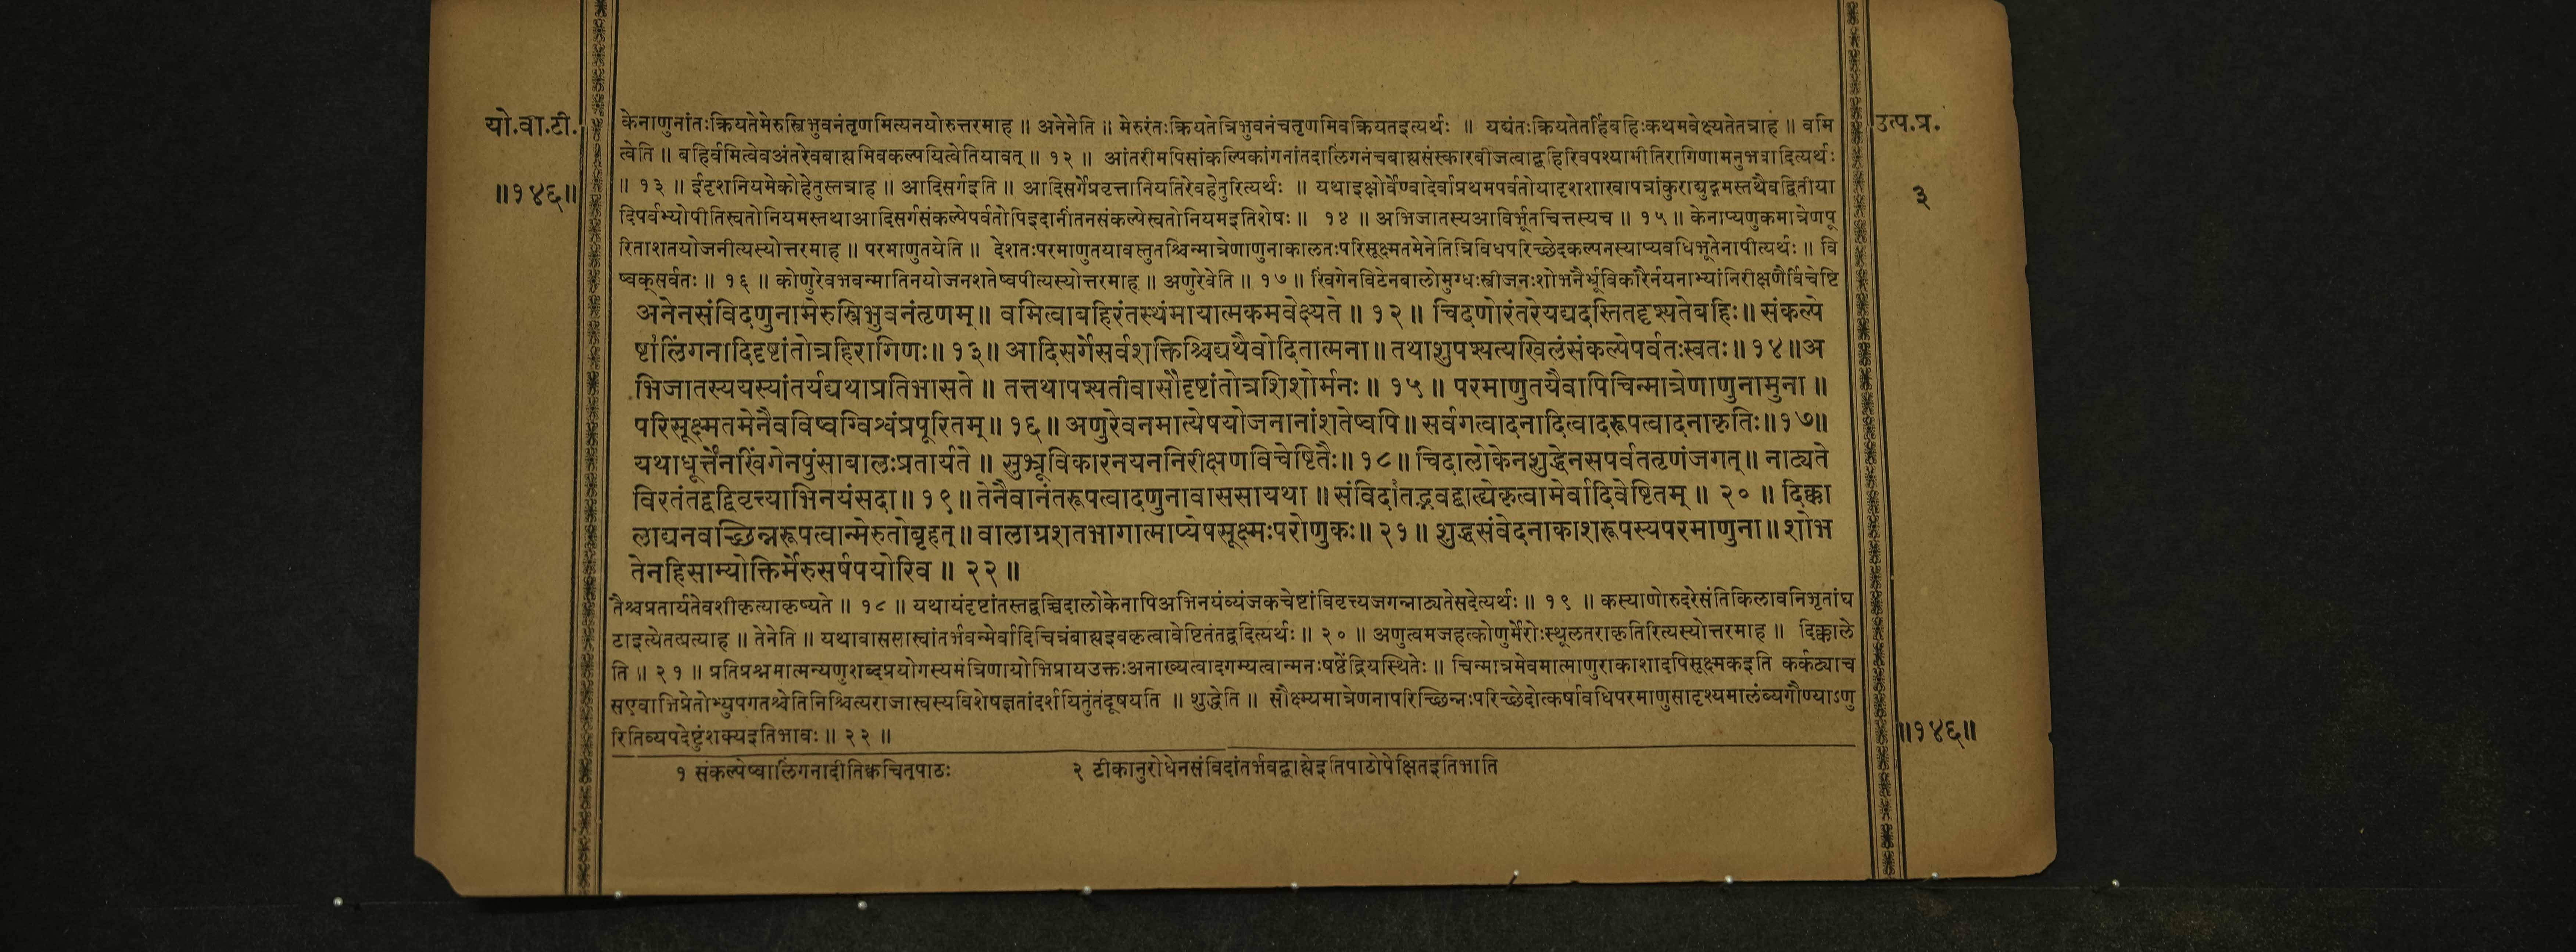 यो.वा.टी.
॥१४६॥
उत्प.प्र.
३
केनाणुनांतःक्रियतेमेरुस्त्रिभुवनंतृणमित्यनयोरुत्तरमाह ॥ अनेनेति ॥ मेरुरंतःक्रियतेत्रिभुवनंचतृणमिवक्रियतइत्यर्थः ॥ यद्यंतःक्रियतेतर्हिबहिःकथमवेक्ष्यतेतत्राह ॥ वमि
त्वेति ॥ बहिर्वमित्वेवअंतरेवबाह्यमिवकल्पयित्वेतियावत् ॥ १२ ॥ आंतरीमपिसांकल्पिकांगनांतदालिंगनंचबाह्यसंस्कारबीजत्वाद्बहिरिवपश्यामीतिरागिणामनुभवादित्यर्थः
॥ १३ ॥ ईदृशनियमेकोहेतुस्तत्राह ॥ आदिसर्गइति ॥ आदिसर्गेप्रवृत्तानियतिरेवहेतुरित्यर्थः ॥ यथाइक्षोर्वेण्वादेर्वाप्रथमपर्वतोयादृशशाखापत्रांकुराद्युद्गमस्तथैवद्वितीया
दिपर्वभ्योपीतिस्वतोनियमस्तथाआदिसर्गसंकल्पेपर्वतोपिइदानींतनसंकल्पेस्वतोनियमइतिशेषः ॥ १४ ॥ अभिजातस्यआविर्भूतचित्तस्यच ॥ १५ ॥ केनाप्यणुकमात्रेणपू
रिताशतयोजनीत्यस्योत्तरमाह ॥ परमाणुतयेति ॥ देशतःपरमाणुतयावस्तुतश्चिन्मात्रेणाणुनाकालतःपरिसूक्ष्मतमेनेतित्रिविधपरिच्छेदकल्पनस्याप्यवधिभूतेनापीत्यर्थः ॥ वि
ष्वक्सर्वतः ॥ १६ ॥ कोणुरेवभवन्मातिनयोजनशतेष्वपीत्यस्योत्तरमाह ॥ अणुरेवेति ॥ १७ ॥ खिंगेनविटेनबालोमुग्धःस्त्रीजनःशोभनैर्भ्रूविकारैर्नयनाभ्यांनिरीक्षणैर्विचेष्टि
अनेनसंविदणुनामेरुस्त्रिभुवनंतृणम् ॥ वमित्वाबहिरंतस्थंमायात्मकमवेक्ष्यते ॥ १२ ॥ चिदणोरंतरेयद्यदस्तितदृश्यतेबहिः ॥ संकल्पे
ष्टालिंगनादिदृष्टांतोत्रहिरागिणः ॥ १३ ॥ आदिसर्गेसर्वशक्तिश्चिद्यथैवोदितात्मना ॥ तथाशुपश्यत्यखिलंसंकल्पेपर्वतःस्वतः ॥ १४ ॥ अ
भिजातस्ययस्यांतर्यद्यथाप्रतिभासते ॥ तत्तथापश्यतीवासौदृष्टांतोत्रशिशोर्मनः ॥ १५ ॥ परमाणुतयैवापिचिन्मात्रेणाणुनामुना ॥
परिसूक्ष्मतमेनैवविष्वग्विश्वंप्रपूरितम् ॥ १६ ॥ अणुरेवनमात्येषयोजनानांशतेष्वपि ॥ सर्वगत्वादनादित्वादरूपत्वादनाकृतिः ॥ १७ ॥
यथाधूर्त्तेनखिंगेनपुंसाबालःप्रतार्यते ॥ सुभ्रूविकारनयननिरीक्षणविचेष्टितैः ॥ १८ ॥ चिदालोकेनशुद्धेनसपर्वततृणंजगत् ॥ नाट्यते
विरतंतद्वद्विवृत्त्याभिनयंसदा ॥ १९ ॥ तेनैवानंतरूपत्वादणुनावाससायथा ॥ संविदांतद्भवद्वात्द्येकृत्वामेर्वादिवेष्टितम् ॥ २० ॥ दिक्का
लाद्यनवच्छिन्नरूपत्वान्मेरुतोबृहत् ॥ वालाग्रशतभागात्माप्येषसूक्ष्मःपरोणुकः ॥ २१ ॥ शुद्धसंवेदनाकाशरूपस्यपरमाणुना ॥ शोभ
तेनहिसाम्योक्तिर्मेरुसर्षपयोरिव ॥ २२ ॥
तैश्चप्रतार्यतेवशीकृत्याकृष्यते ॥ १८ ॥ यथायंदृष्टांतस्तद्वच्चिदालोकेनापिअभिनयंव्यंजकचेष्टांविवृत्त्यजगन्नाट्यतेसदेत्यर्थः ॥ १९ ॥ कस्याणोरुदरेसंतिकिलावनिभृतांघ
टाइत्येतत्प्रत्याह ॥ तेनेति ॥ यथावाससास्वांतर्भवन्मेर्वादिचित्रंबाह्यइवकृत्वावेष्टितंतद्वदित्यर्थः ॥ २० ॥ अणुत्वमजहत्कोणुर्मेरोःस्थूलतराकृतिरित्यस्योत्तरमाह ॥ दिक्काले
ति ॥ २१ ॥ प्रतिप्रश्नमात्मन्यणुशब्दप्रयोगस्यमंत्रिणायोभिप्रायउक्तःअनाख्यत्वादगम्यत्वान्मनःषष्ठेंद्रियस्थितेः ॥ चिन्मात्रमेवमात्माणुराकाशादपिसूक्ष्मकइति कर्कट्याच
सएवाभिप्रेतोभ्युपगतश्चेतिनिश्चित्यराजास्वस्यविशेषज्ञतांदर्शयितुंतंदूषयति ॥ शुद्धेति ॥ सौक्ष्म्यमात्रेणनापरिच्छिन्नःपरिच्छेदोत्कर्षावधिपरमाणुसादृश्यमालंब्यगौण्याऽणु
रितिव्यपदेष्टुंशक्यइतिभावः ॥ २२ ॥
॥१४६॥
१ संकल्पेष्वालिंगनादीतिक्वचित्पाठः २ टीकानुरोधेनसंविदांतर्भवद्बाह्येइतिपाठोपेक्षितइतिभाति